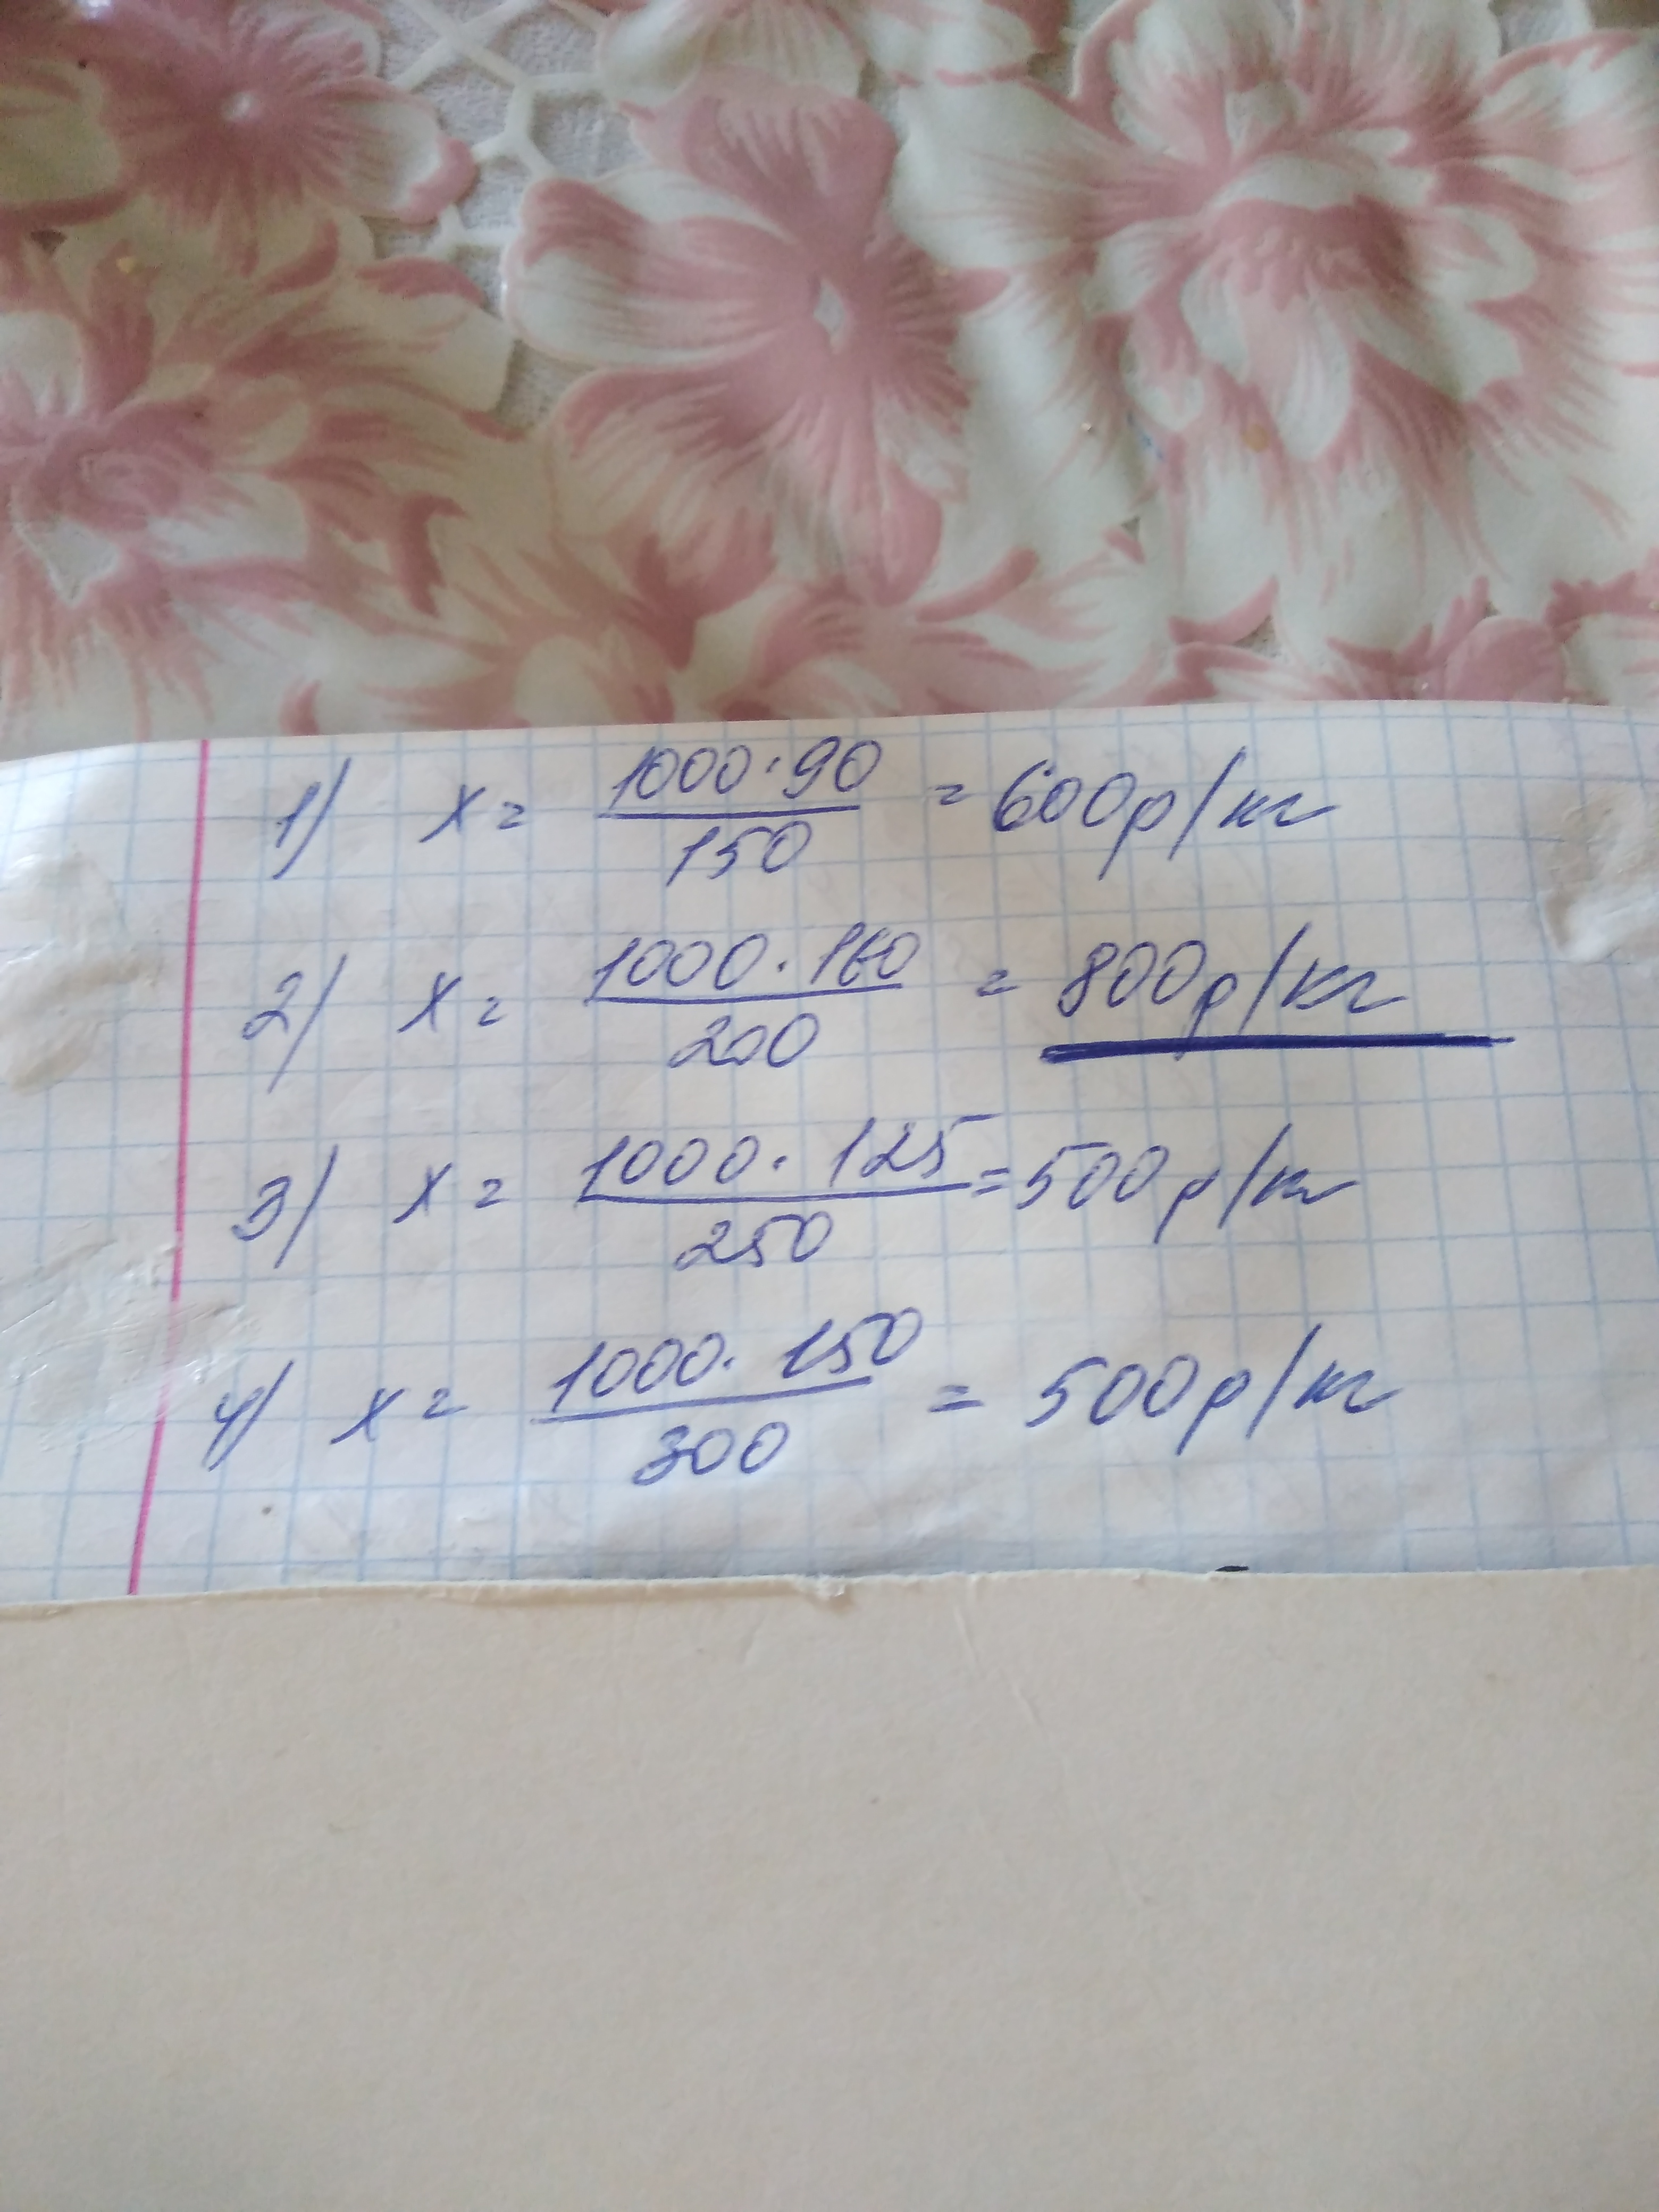 1) x = 1000·90/150 = 600р/кг
2) x = 1000·160/200 = 800р/кг
3) x = 1000·125/250 = 500р/кг
4) x = 1000·150/300 = 500р/кг